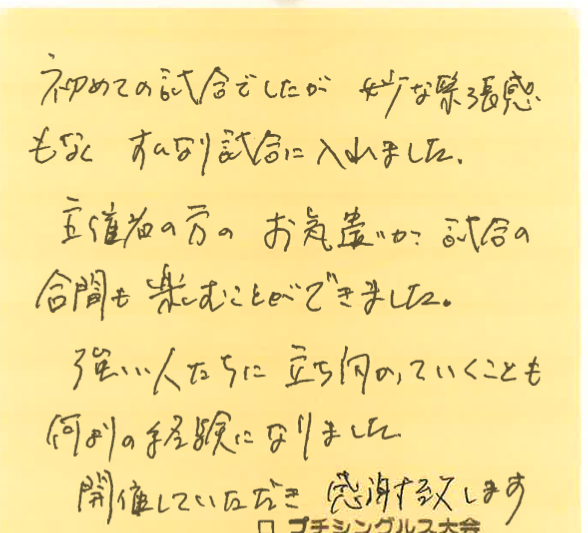 初めての試合でしたが 妙な緊張感
もなく すんなり試合に入れました.
主催者の方の お気遣いか? 試合の
合間も 楽しむことができました。
強い人たちに 立ち向かっていくことも
何よりの経験になりました
開催していただき 感謝致します
□ プチシングルス大会